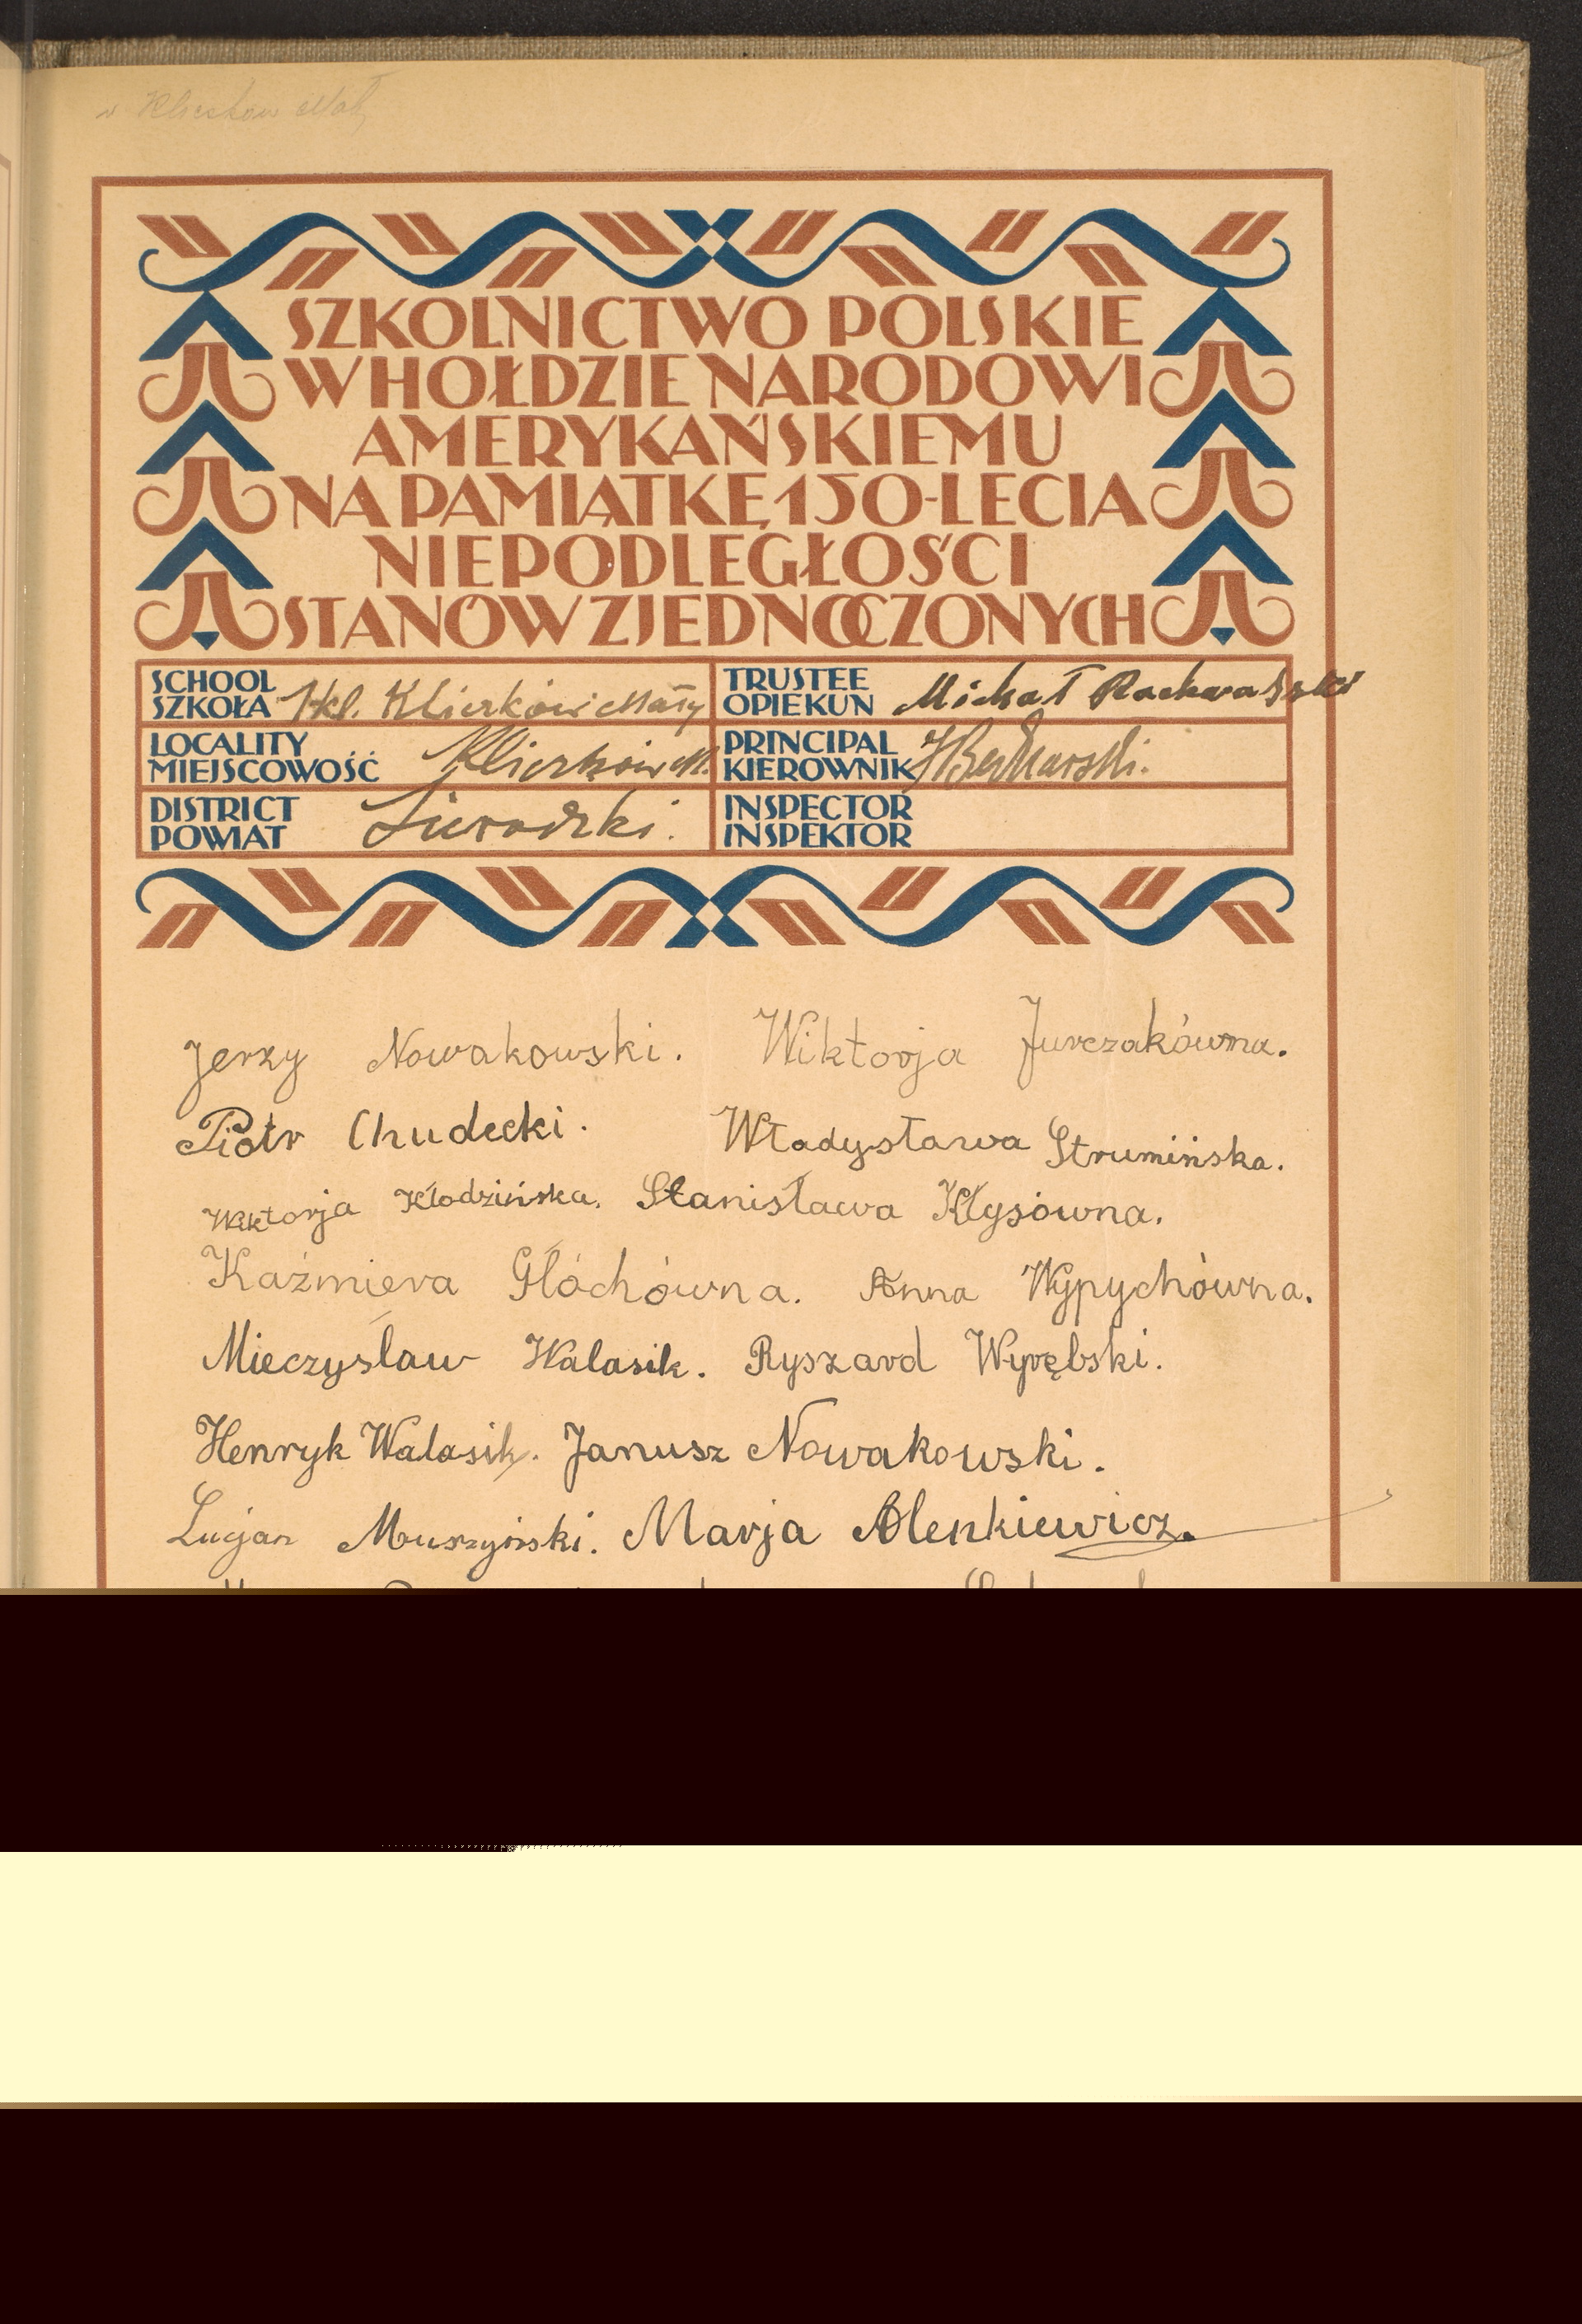 w Klieszków Mał
SZKOLNICTWO POLSKIE
W HOŁDZIE NARODOWI
AMERYKAŃSKIEMU
NA PAMIĄTKĘ 150-LECIA
NIEPODLEGŁOŚCI
STANÓW ZJEDNOCZONYCH
SCHOOL
SZKOŁA kl. Kliczków Mały
TRUSTEE
OPIEKUN Michał Rachwalski
LOCALITY
MIEJSCOWOŚĆ Kliczków M.
PRINCIPAL
KIEROWNIK
DISTRICT
POWIAT Sieradzki.
INSPECTOR
INSPEKTOR
Jerzy Nowakowski. Wiktorja Jurczakówna.
Piotr Chudecki. Władysława Strumińska.
Wiktorja Kłodzińska. Stanisława Kłysówna.
Kaźmiera Głóchówna. Anna Wypychówna.
Mieczysław Walasik. Ryszard Wyrębski.
Henryk Walasik. Janusz Nowakowski.
Lucjan Muszyński. Marja Olenkiewicz.